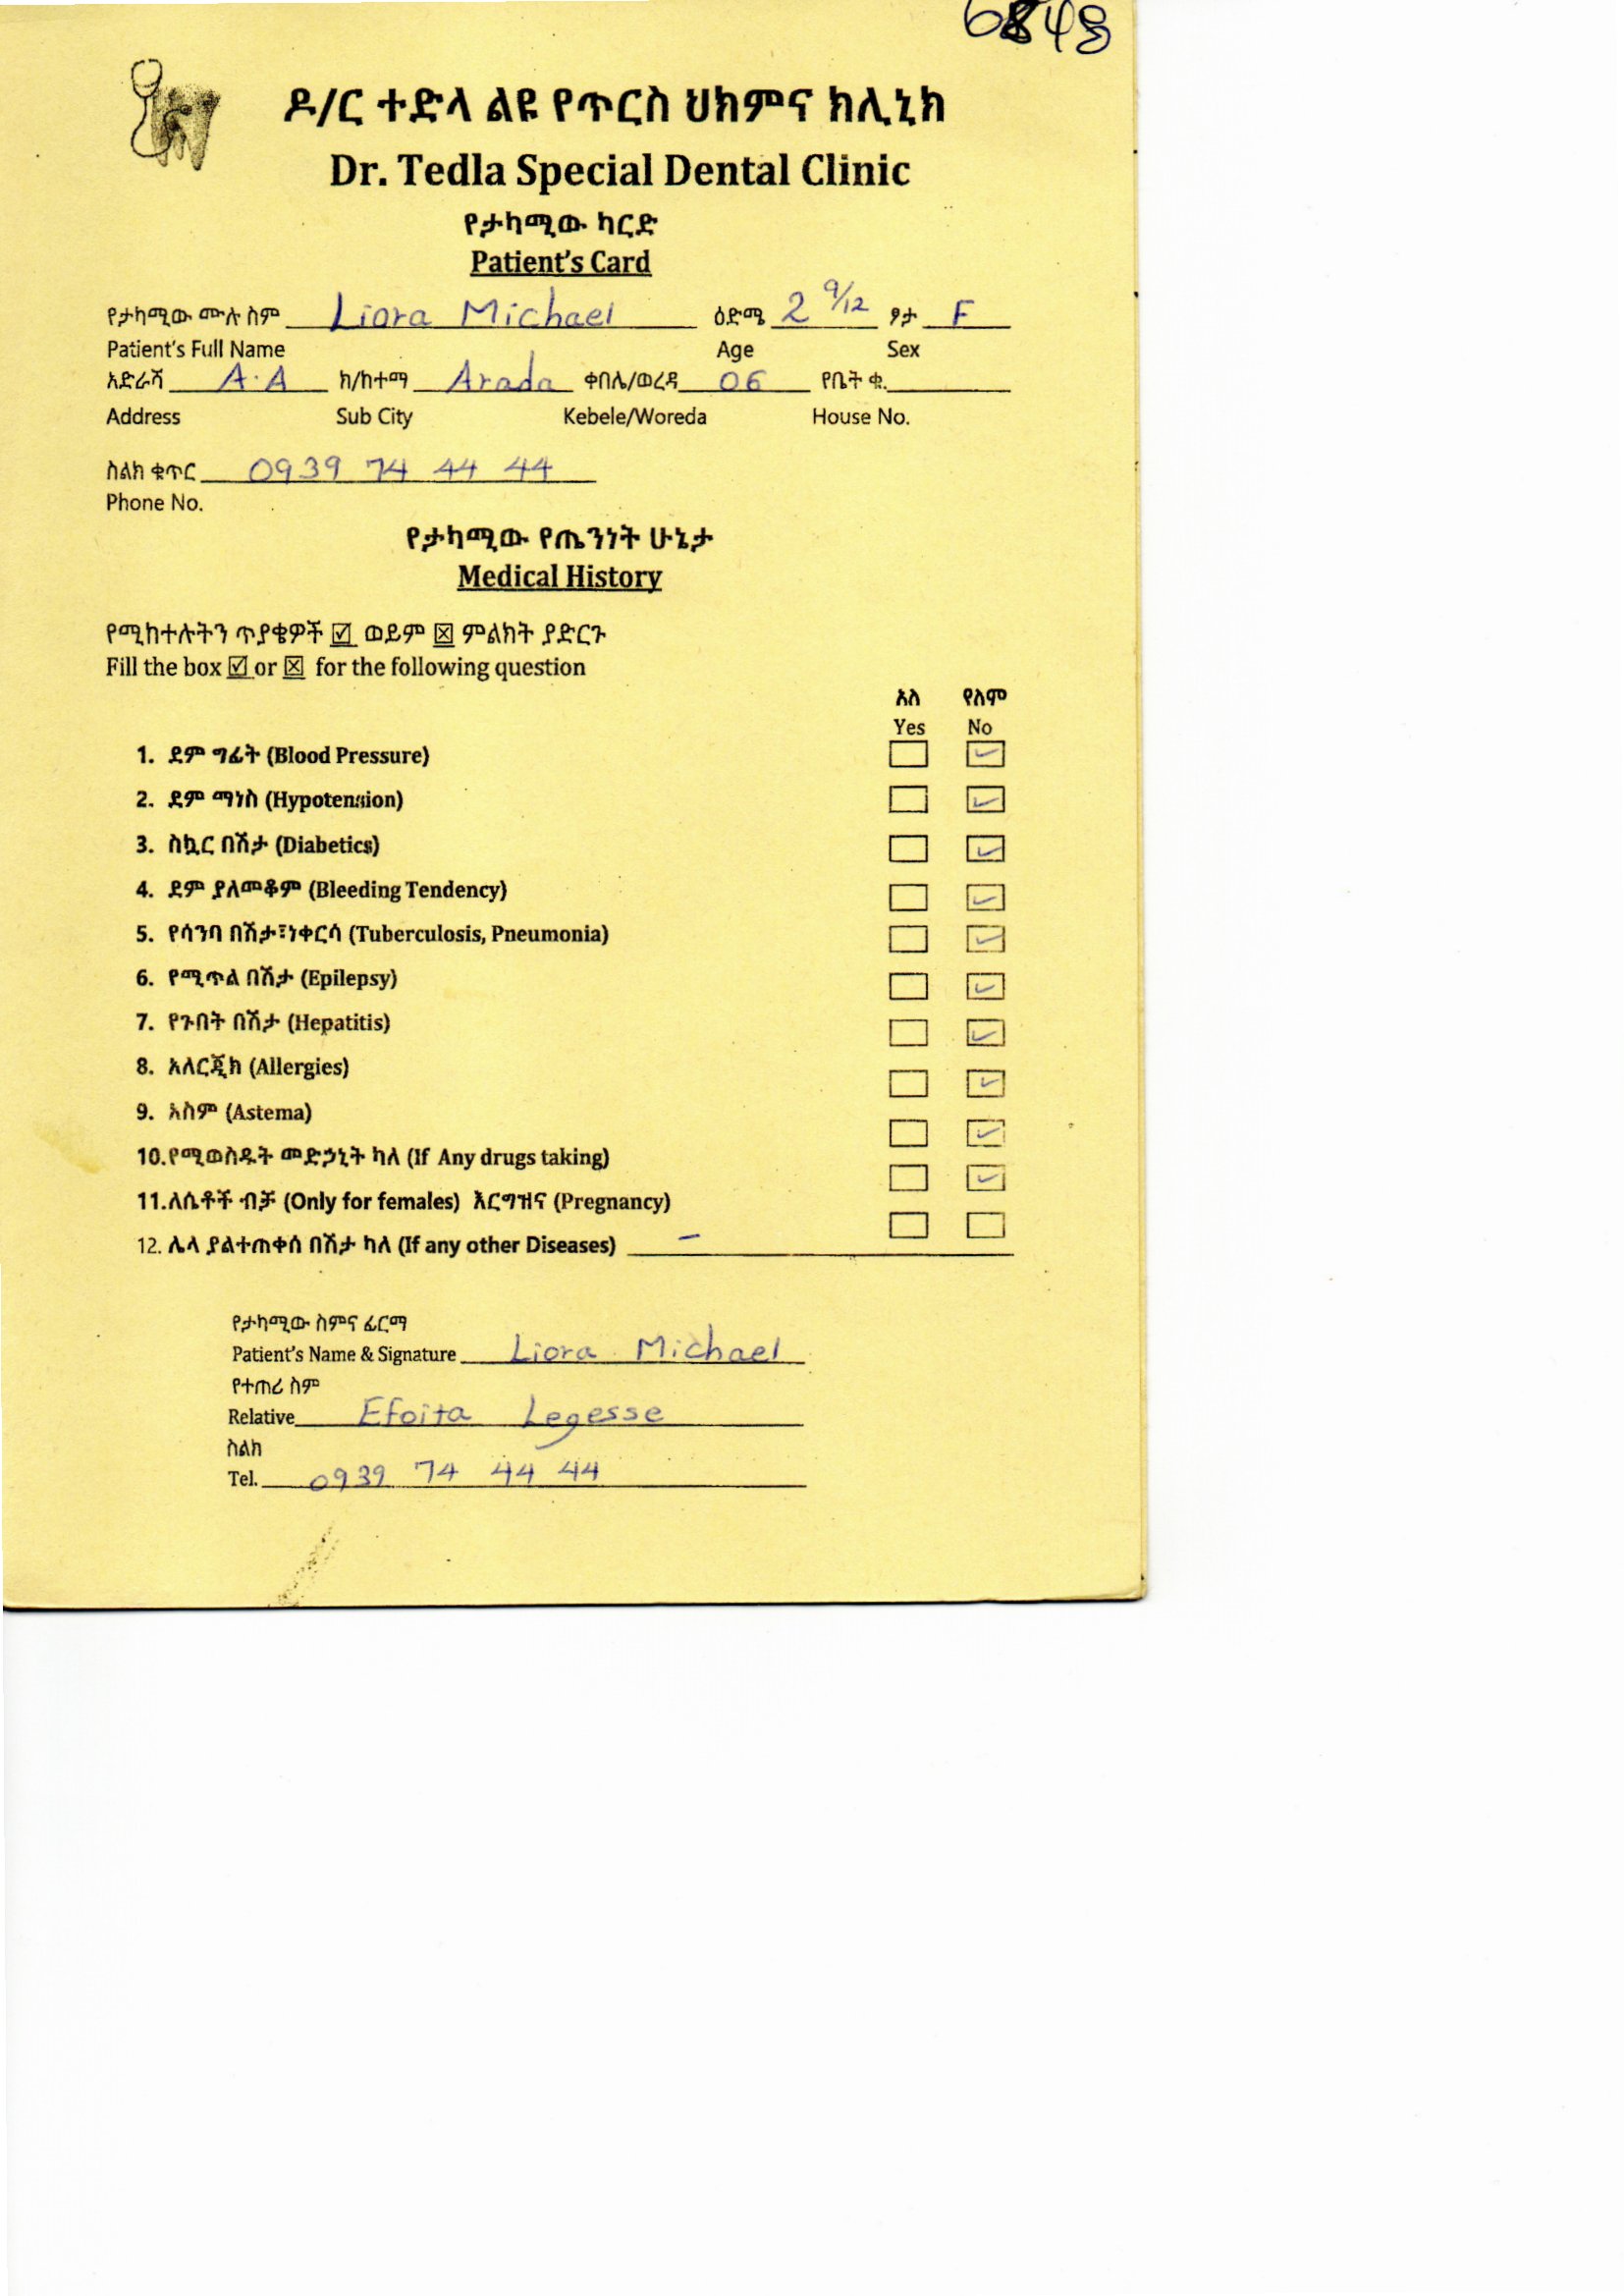 6848
ዶ/ር ተድላ ልዩ የጥርስ ህክምና ክሊኒክ
Dr. Tedla Special Dental Clinic
የታካሚው ካርድ
Patient's Card
የታካሚው ሙሉ ስም Liora Michael ዕድሜ 2 9/12 ፆታ F
Patient's Full Name Age Sex
አድራሻ A.A ክ/ከተማ Arada ቀበሌ/ወረዳ 06 የቤት ቁ.
Address Sub City Kebele/Woreda House No.
ስልክ ቁጥር 0939 74 44 44
Phone No.
የታካሚው የጤንነት ሁኔታ
Medical History
የሚከተሉትን ጥያቄዎች ☑ ወይም ☒ ምልክት ያድርጉ
Fill the box ☑ or ☒ for the following question
አለ የለም
Yes No
1. ደም ግፊት (Blood Pressure) ☐ ☑
2. ደም ማነስ (Hypotension) ☐ ☑
3. ስኳር በሽታ (Diabetics) ☐ ☑
4. ደም ያለመቆም (Bleeding Tendency) ☐ ☑
5. የሳንባ በሽታ፣ነቀርሳ (Tuberculosis, Pneumonia) ☐ ☑
6. የሚጥል በሽታ (Epilepsy) ☐ ☑
7. የጉበት በሽታ (Hepatitis) ☐ ☑
8. አለርጂክ (Allergies) ☐ ☑
9. አስም (Astema) ☐ ☑
10.የሚወስዱት መድኃኒት ካለ (If Any drugs taking) ☐ ☑
11.ለሴቶች ብቻ (Only for females) እርግዝና (Pregnancy) ☐ ☐
12. ሌላ ያልተጠቀሰ በሽታ ካለ (If any other Diseases) –
የታካሚው ስምና ፊርማ
Patient's Name & Signature Liora Michael
የተጠሪ ስም
Relative Efoita Legesse
ስልክ
Tel. 0939 74 44 44